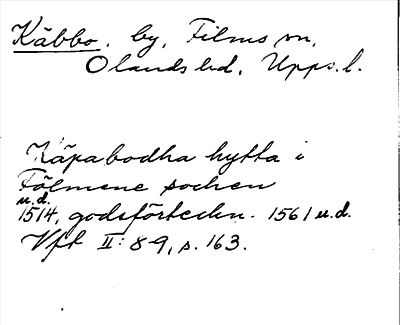 Käbbo, by, Films sn,
Olands hd, Upps. l.
Käpabodha hytta i
Fölmene sochen
u.d.
1514, godsförteckn. 1561 u.d.
Vft II: 8-9, s. 163.